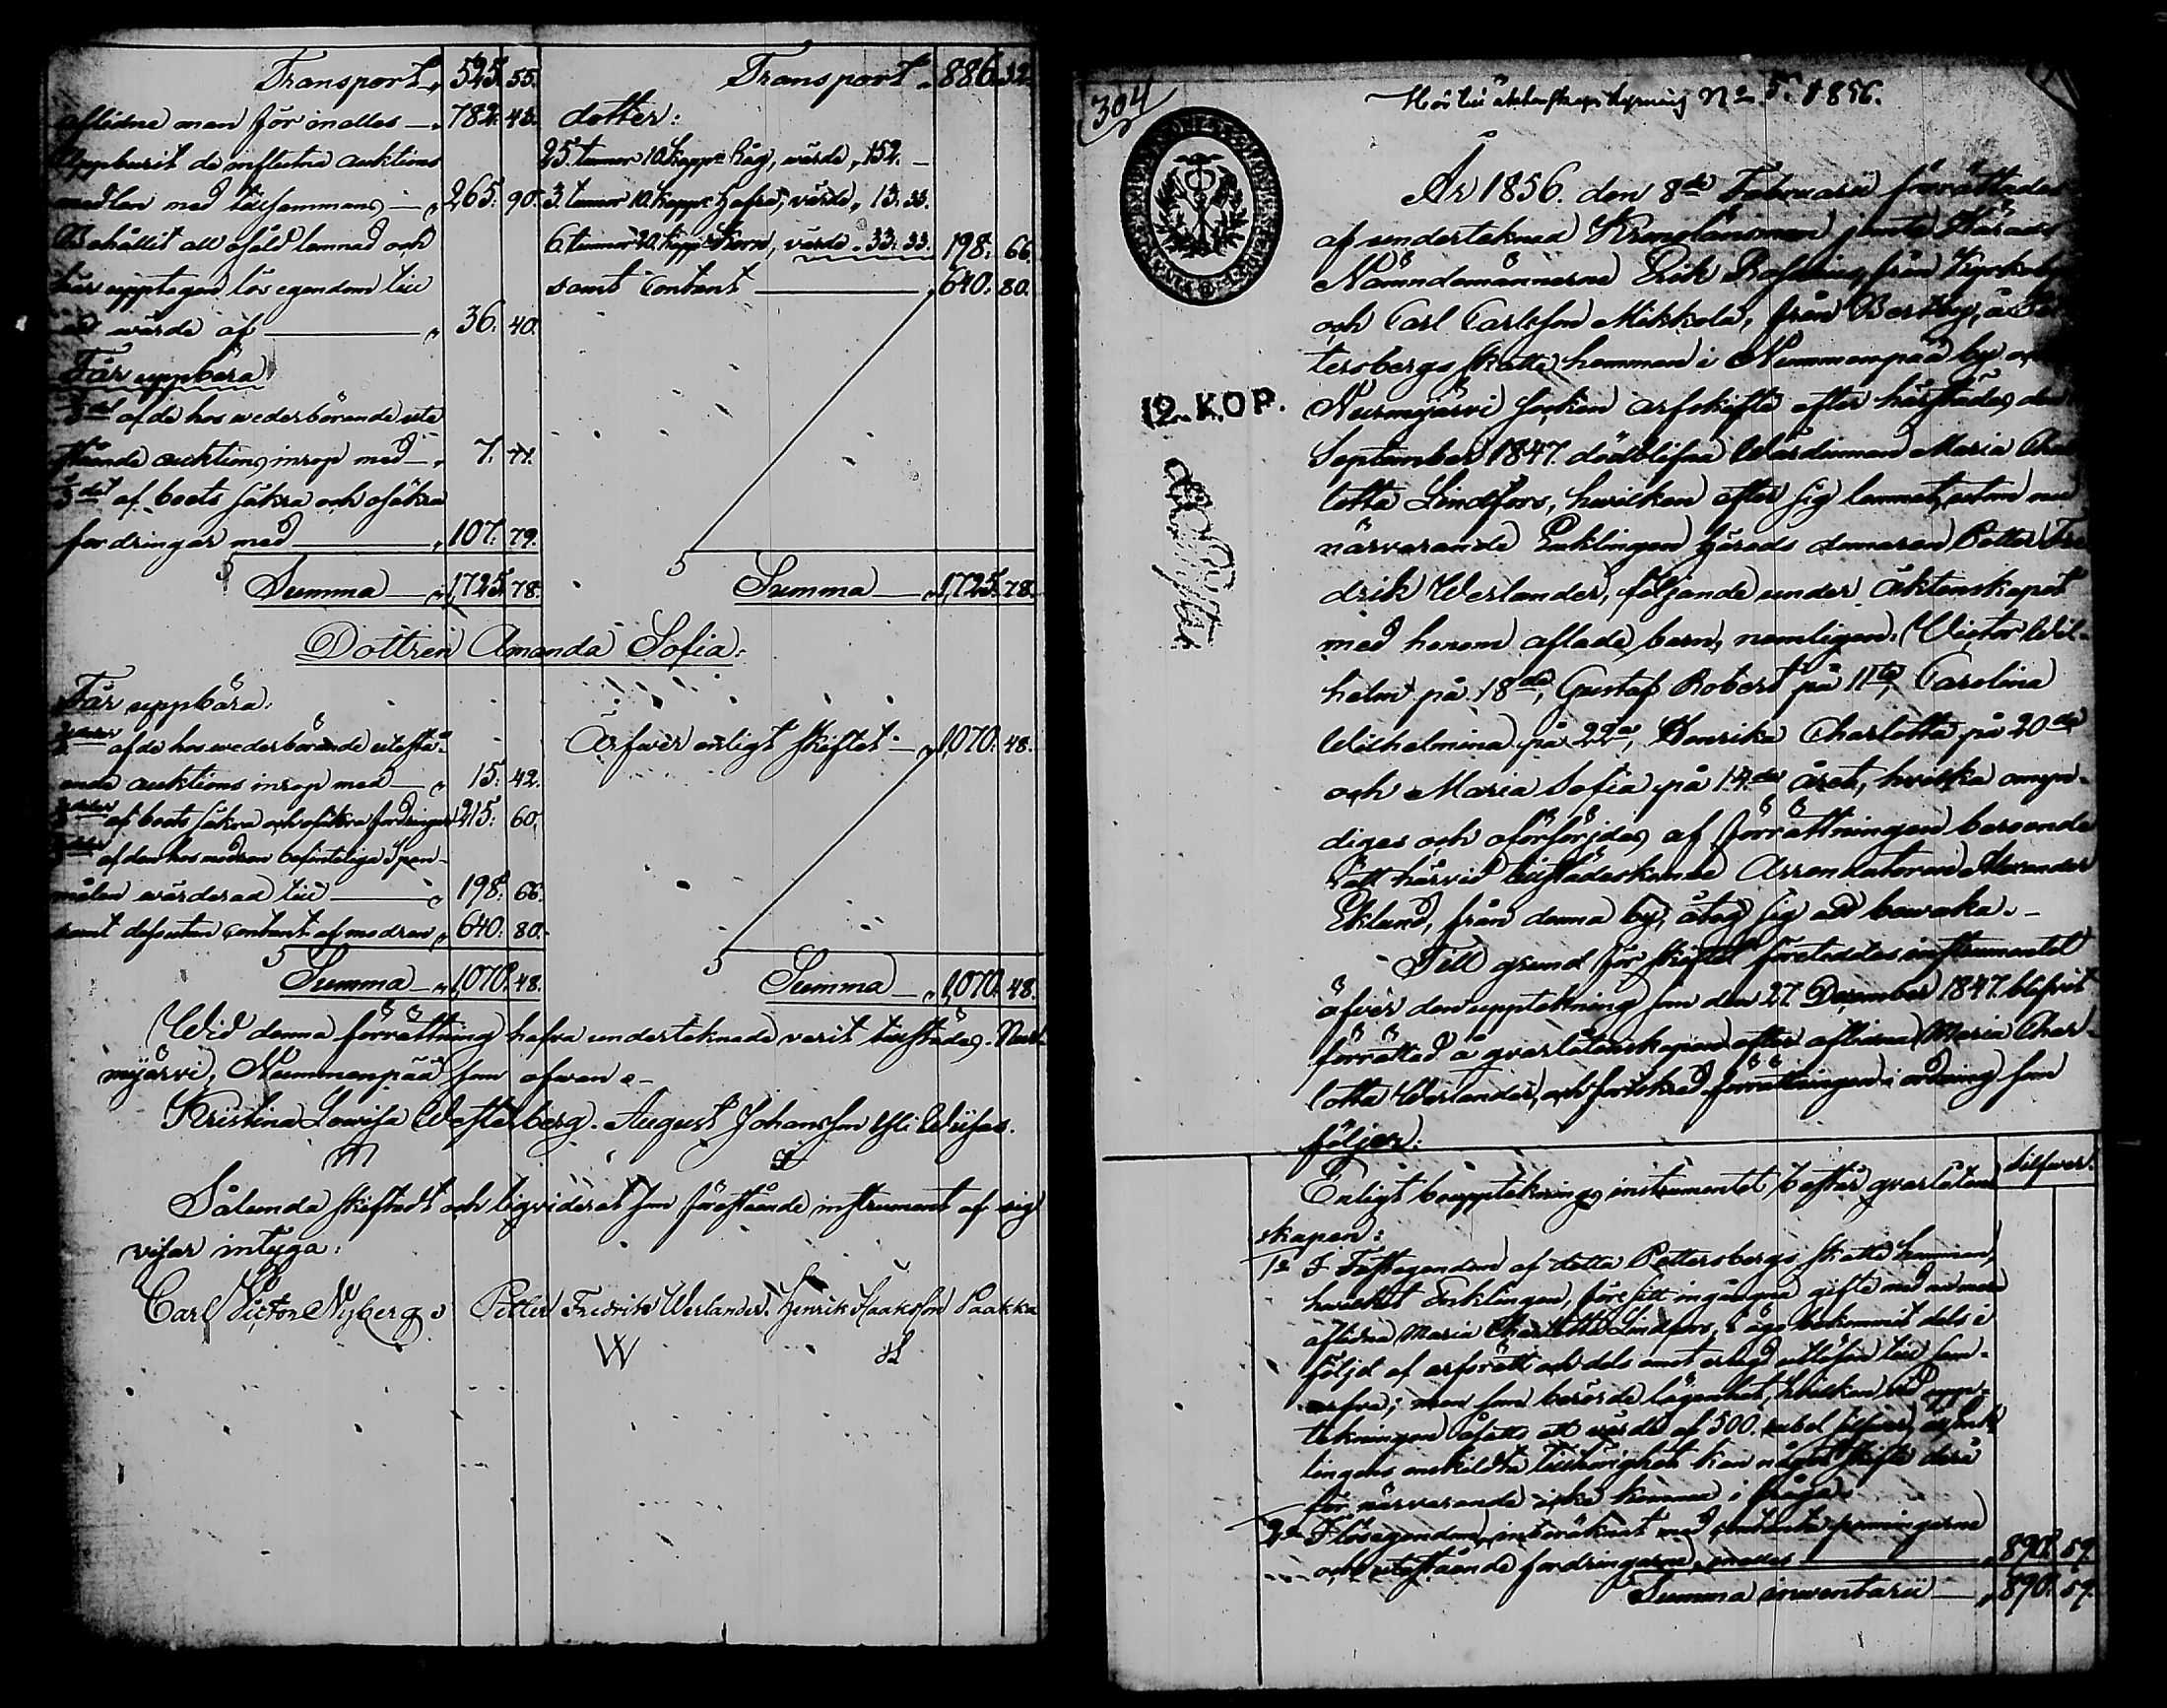 Transport „ 525. 55.
aflidne man för indles — „ 782. 43.
Uppburit de influtna auktions
medlen med tillsammans — „ 265. 90.
Behållit all osåld lemnad och
här upptagen lös egendom till
ett värde af — „ 36. 40.
Får uppbära
af de hos wederbörande ute
stående auktions inrop med — „ 7. 71.
af boets säkra och osäkra
fordringar med — „ 107. 79.
Summa — „ 1,725. 78.
Transport „ 886. 32.
dotter:
25. tunnor 10. kappr Råg, värde „ 152. —
3. tunnor 10. kappr Hafra, värde „ 13. 33.
6. tunnor 20. kappr Korn, värde „ 33. 33. 198. 66.
samt Contant — „ 640. 80.
Summa — „ 1,725. 78.
Dottren Amanda Sofia.
Får uppbära.
af de hos wederbörande utestå-
ende auktions inrop med — „ 15. 42.
af boets säkra och osäkra fordringar 215. 60.
af den hos modren befinteliga Span-
målen värderad till — „ 198. 66.
samt dessutom Contant af modren „ 640. 80.
Summa — „ 1,070. 48.
Ärfver enligt skiftet — „ 1,070. 48.
Summa — „ 1,070. 48.
Wid denna förrättning hafva undertecknade varit tillstädes. Nur-
mijärvi, Nummenpää som ofvan. —
Kristina Lowisa Westerberg. August Johansson
Sålunda skiftadt och liqviderat som förestående instrument af sig
visar intyga:
Carl Victor Nyberg. Petter Fredrik Werlander. Henrik Isaksson Paakka
W
304
Nº 5. 1856.
12. KOP.
År 1856. den 8de Februarii förrättades
af undertecknad Kronolänsman jemte Härads
Nämndemännerne Erik från
och Carl Carlsson Mikkola, från å Pet-
tersbergs skatte hemman i Nummenpää by och
Nurmijärvi socken arfskifte efter härstädes den
September 1847. dödblifna Wärdinnan Maria Char-
lotta Lindfors, hvilken efter sig lemnat, utom nu
närvarande Enklingen Härads domaren Petter Fre-
drik Werlander, följande under äktenskapet
med honom aflade barn, nemligen: Victor Wil-
helm på 18de, Gustaf Robert på 11te, Carolina
Wilhelmina på 22a, Henrika Charlotta på 20de
och Maria Sofia på 14de året, hvilka omyn-
diges och oförsörjdes af förrättningen beroende
rätt härvid tillstädeskomne Arrendatoren Alexander
Eklund, från denna by, åtog sig att bevaka. —
Till grund för skiftet företeddes instrumentet
öfver den uppteckning som den 27. December 1847. blifvit
förrättad å qvarlåtenskapen efter aflidna Maria Char-
lotta Werlander, och fortsked förrättningen i ordning som
följer:
Silfwer.
Enligt bouppteknings instrumentet består qvarlåten-
skapen:
1º I Fast egendom af detta Pettersbergs skatte hemman,
hvilket Enklingen, före sitt ingångna gifte med nu mera
aflidna Maria Charlotta Lindfors, bekommit dels i
följd af arfsrätt och dels emot erlagd utlösen till sam-
arfva; men som berörde lägenhet, hvilken vid upp-
tekningen åsatts ett värde af 500. rubel silfver, är Enk-
lingens enskildta tillhörighet kan något skifte derå
för närvarande icke komma i fråga.
2º I lösegendom, inberäknat med contanta penningarne
och utestående fordringarne, — „ 890. 59.
Summa inventarii — „ 890. 59.